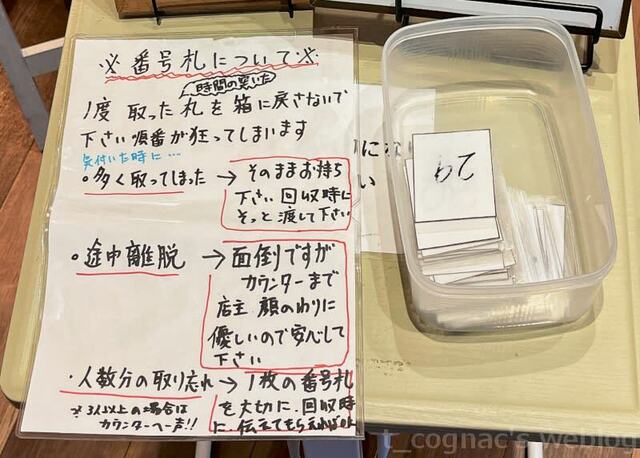 ※番号札について※
時間の空いた
1度 取った札を箱に戻さないで
下さい 順番が狂ってしまいます
気付いた時に…
・多く取ってしまった → そのままお持ち
下さい 回収時に
そっと渡して下さい
・途中離脱 → 面倒ですが
カウンターまで
店主 顔のわりに
優しいので安心して
下さい
・人数分の取り忘れ → 1枚の番号札
を大切に、回収時
に伝えてもらえれば
※3人以上の場合は
カウンターへ一声!!
い
t_cognac's weblog